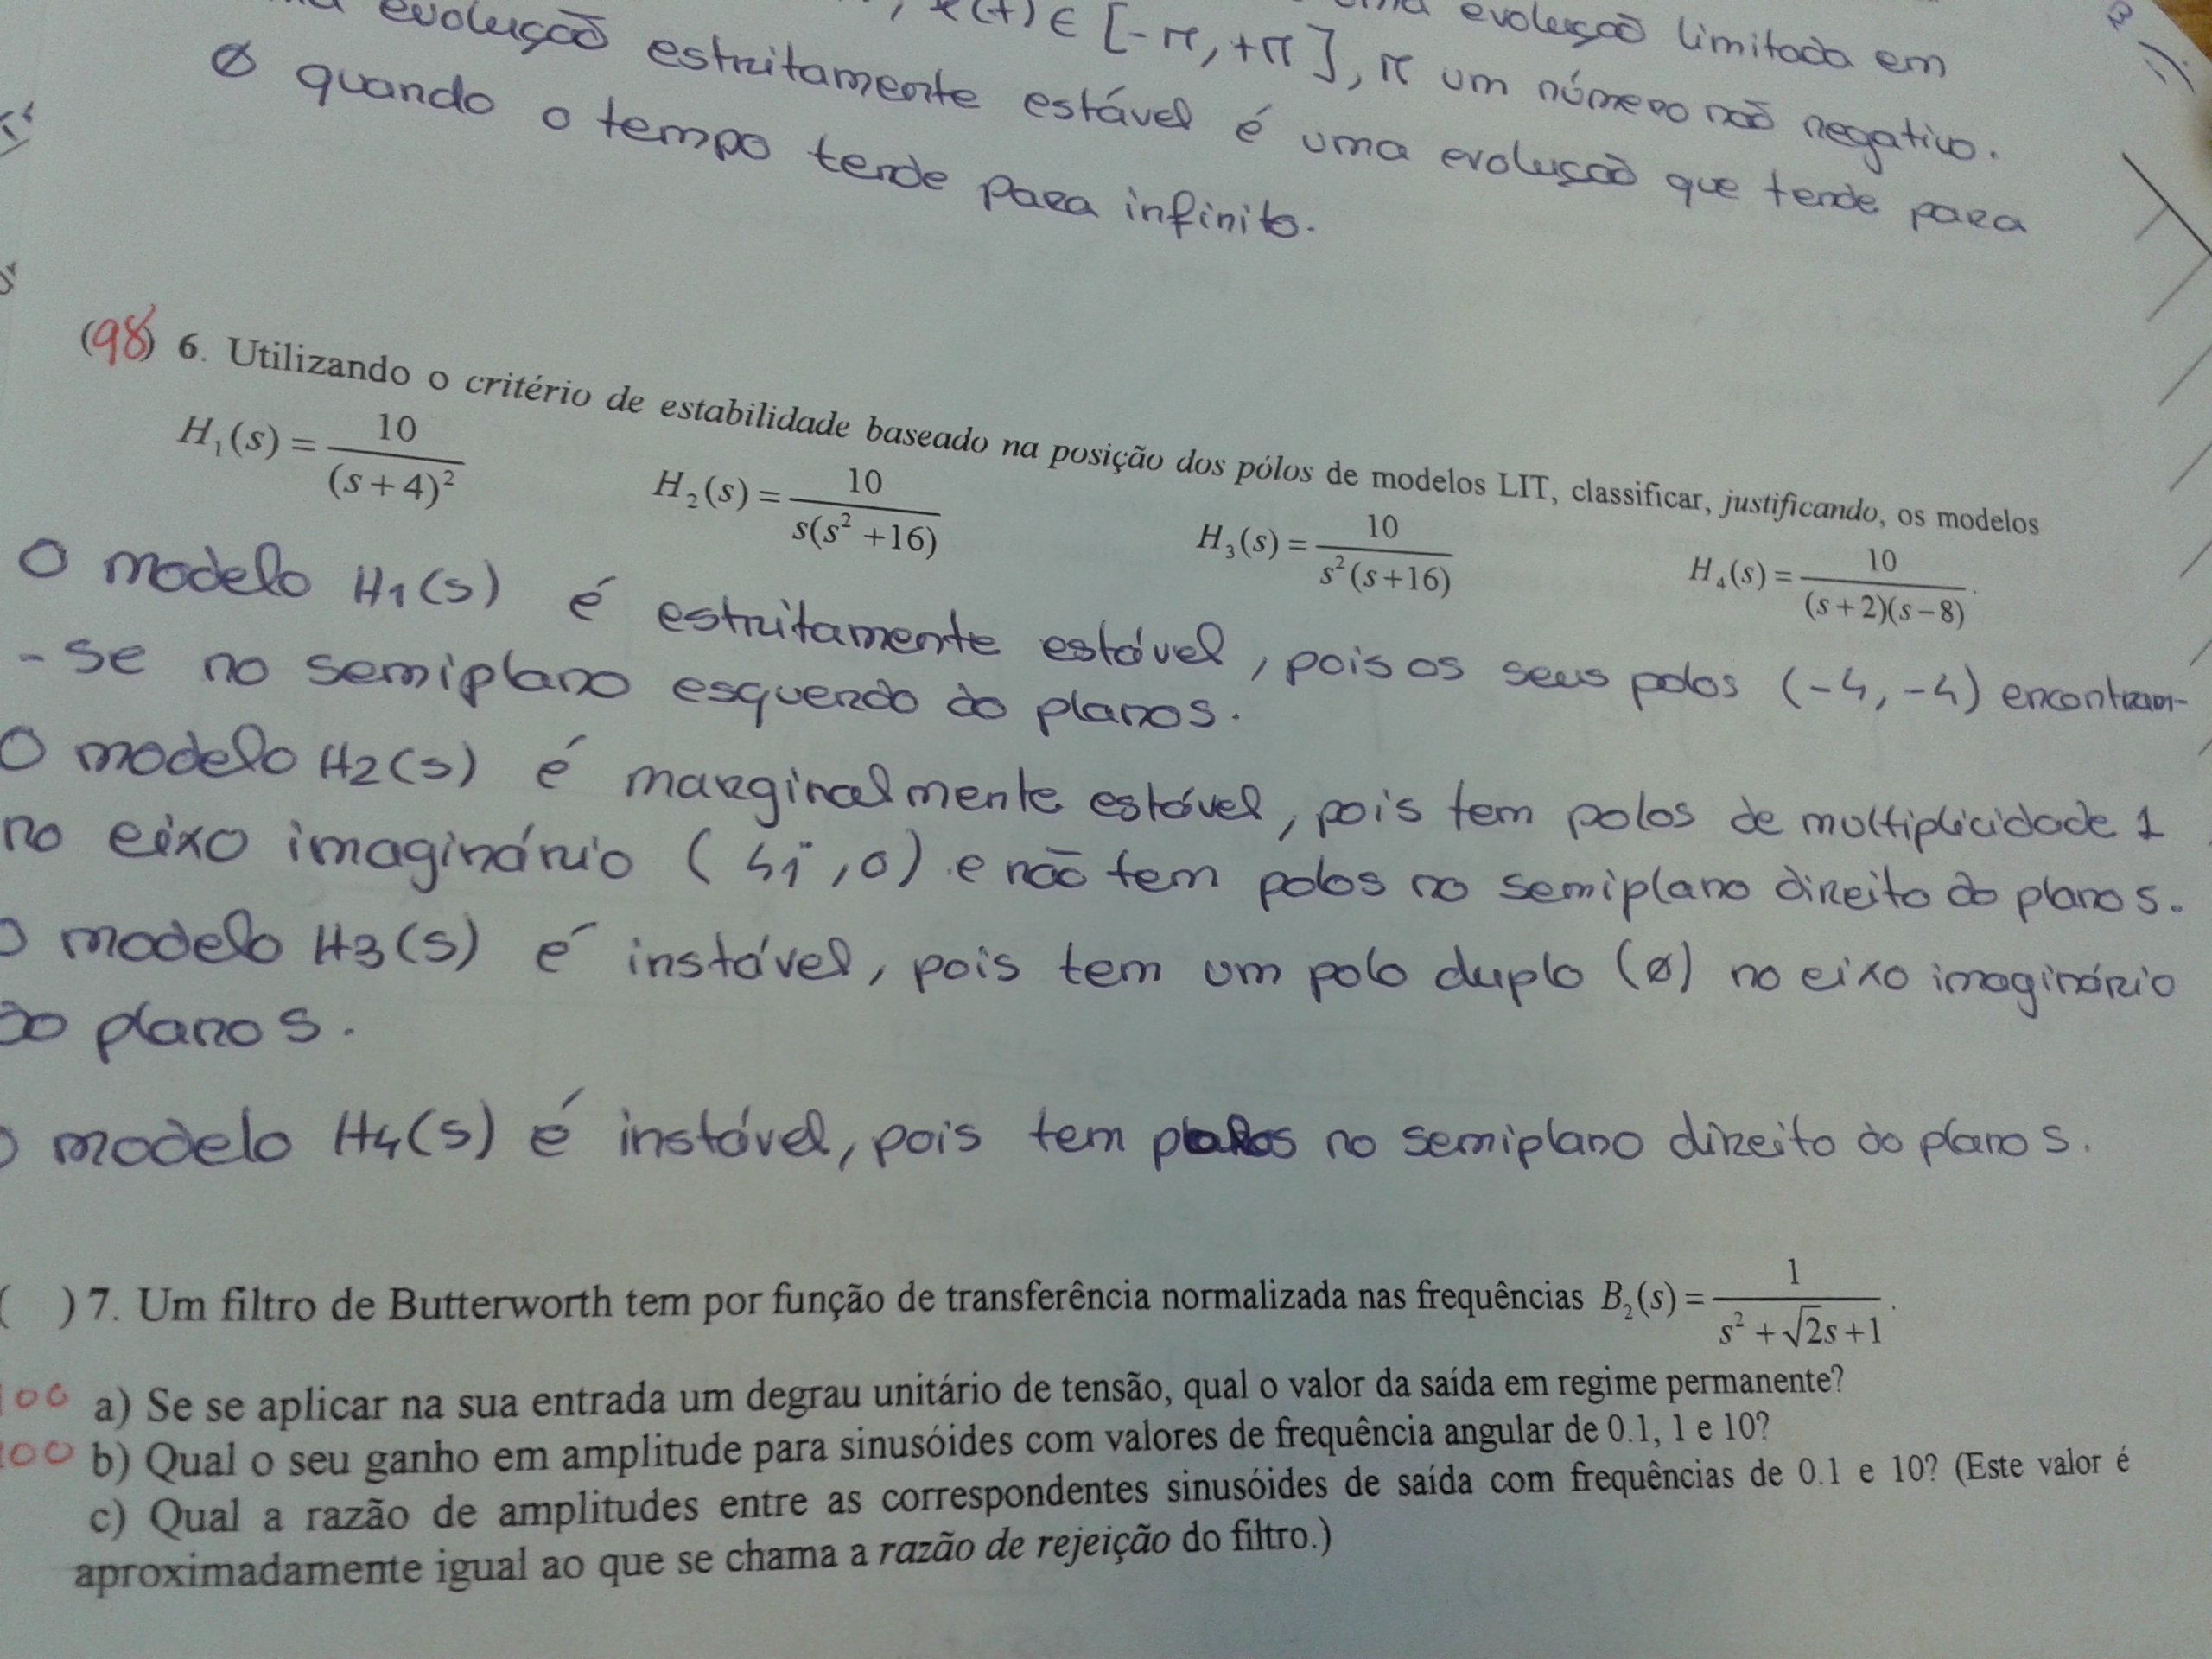 evolução limitada em
x(t) ∈ [-π, +π], π um número não negativo.
evolução estritamente estável é uma evolução que tende para
∅ quando o tempo tende para infinito.
(98) 6. Utilizando o critério de estabilidade baseado na posição dos pólos de modelos LIT, classificar, justificando, os modelos
H₁(s) = 10/(s+4)² H₂(s) = 10/(s(s²+16)) H₃(s) = 10/(s²(s+16)) H₄(s) = 10/((s+2)(s−8)).
O modelo H1(s) é estritamente estável, pois os seus polos (-4, -4) encontram-
-se no semiplano esquerdo do plano s.
O modelo H2(s) é marginalmente estável, pois tem polos de multiplicidade 1
no eixo imaginário (4i, 0) e não tem polos no semiplano direito do plano s.
O modelo H3(s) é instável, pois tem um polo duplo (∅) no eixo imaginário
do plano s.
O modelo H4(s) é instável, pois tem polos no semiplano direito do plano s.
( ) 7. Um filtro de Butterworth tem por função de transferência normalizada nas frequências B₂(s) = 1/(s² + √2s + 1).
100 a) Se se aplicar na sua entrada um degrau unitário de tensão, qual o valor da saída em regime permanente?
100 b) Qual o seu ganho em amplitude para sinusóides com valores de frequência angular de 0.1, 1 e 10?
c) Qual a razão de amplitudes entre as correspondentes sinusóides de saída com frequências de 0.1 e 10? (Este valor é
aproximadamente igual ao que se chama a razão de rejeição do filtro.)